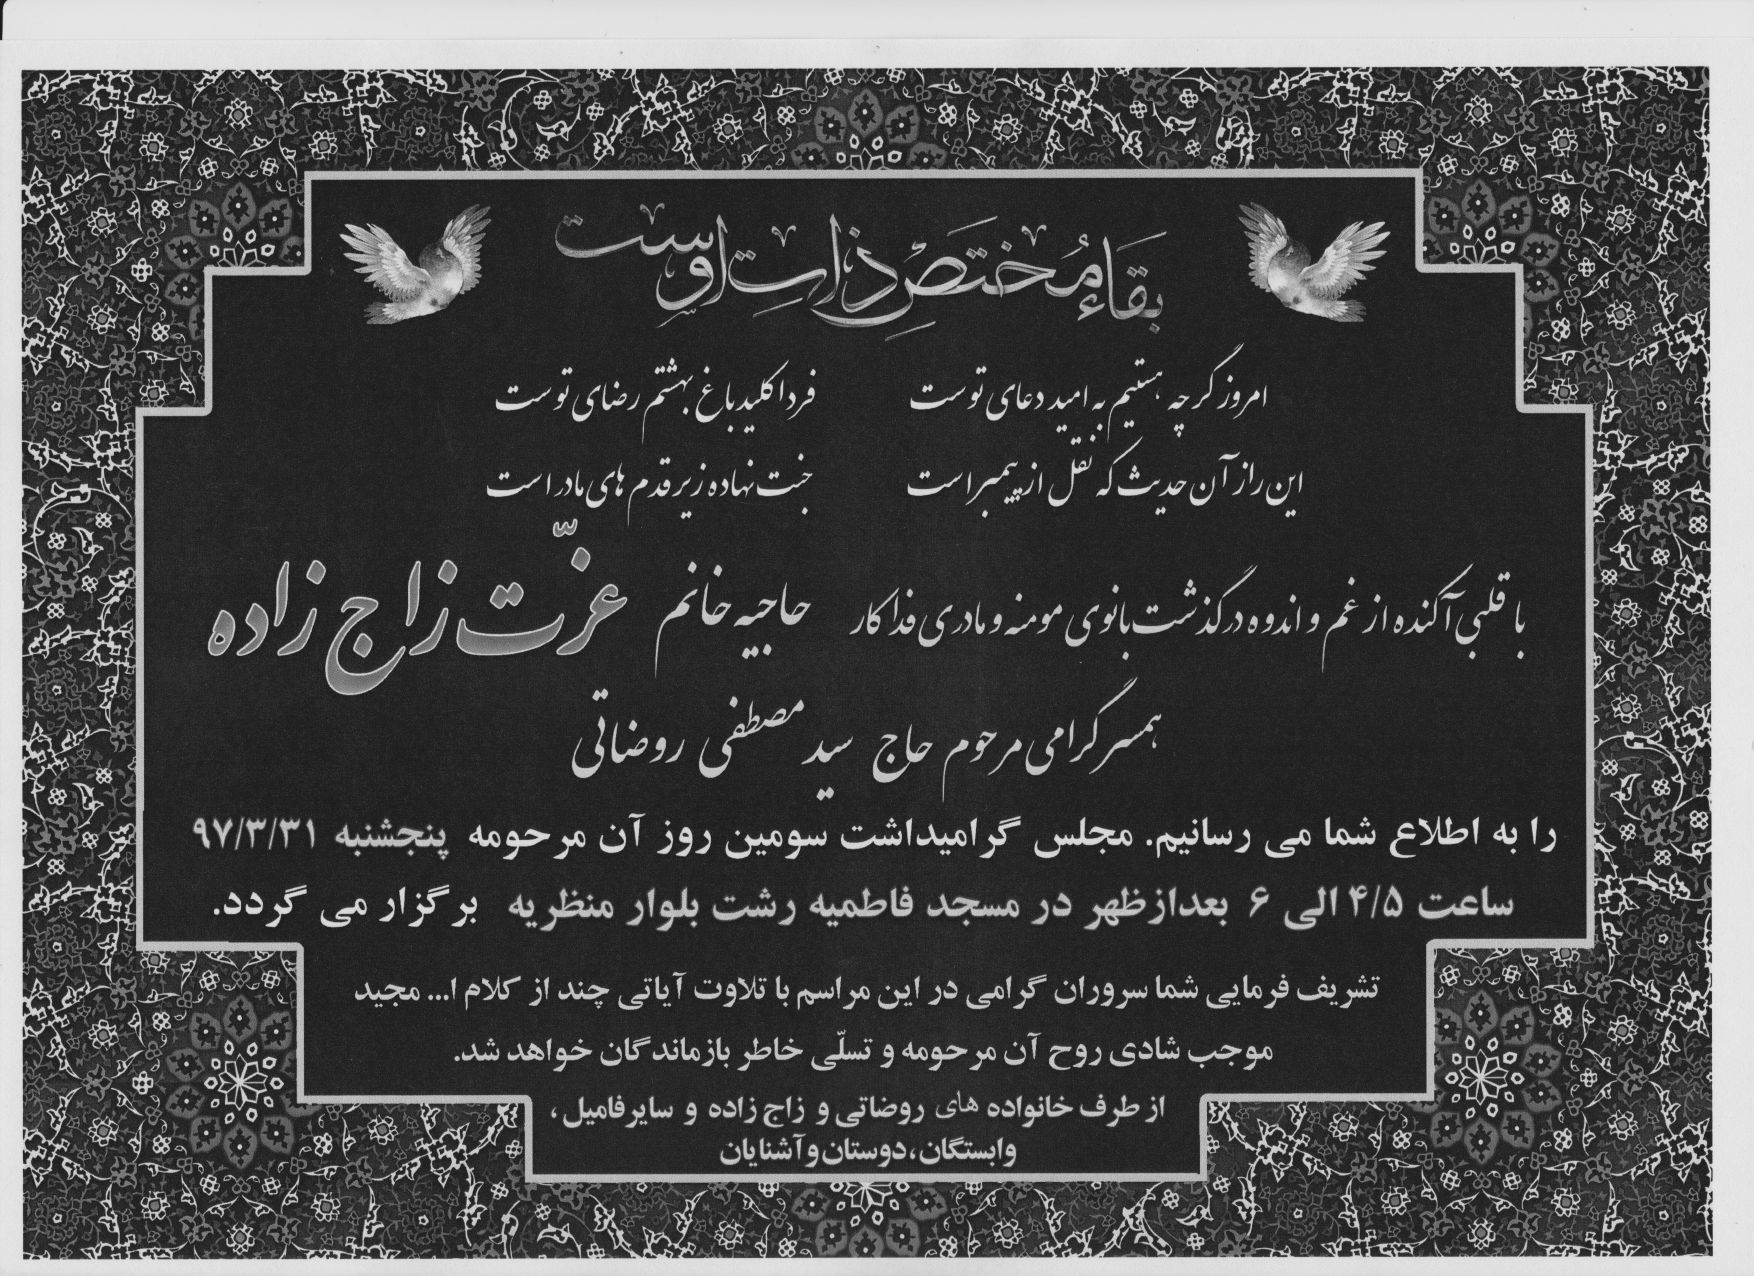 بقاء مختص ذات اوست
امروز گرچه هستیم به امید دعای توست فردا کلید باغ بهشتم رضای توست
این راز آن حدیث که نقل از پیمبر است جنت نهاده زیر قدم های مادر است
با قلبی آکنده از غم و اندوه درگذشت بانوی مومنه و مادری فداکار حاجیه خانم عزّت زاج زاده
همسر گرامی مرحوم حاج سید مصطفی روضاتی
را به اطلاع شما می رسانیم. مجلس گرامیداشت سومین روز آن مرحومه پنجشنبه ۹۷/۳/۳۱
ساعت ۴/۵ الی ۶ بعدازظهر در مسجد فاطمیه رشت بلوار منظریه برگزار می گردد.
تشریف فرمایی شما سروران گرامی در این مراسم با تلاوت آیاتی چند از کلام ا... مجید
موجب شادی روح آن مرحومه و تسلّی خاطر بازماندگان خواهد شد.
از طرف خانواده های روضاتی و زاج زاده و سایر فامیل،
وابستگان، دوستان و آشنایان